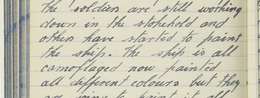 the soldiers are still working
down in the stokehold and
others have started to paint
the ship. The ship is all
camoflaged now painted
all different colours but they
are going to paint it all